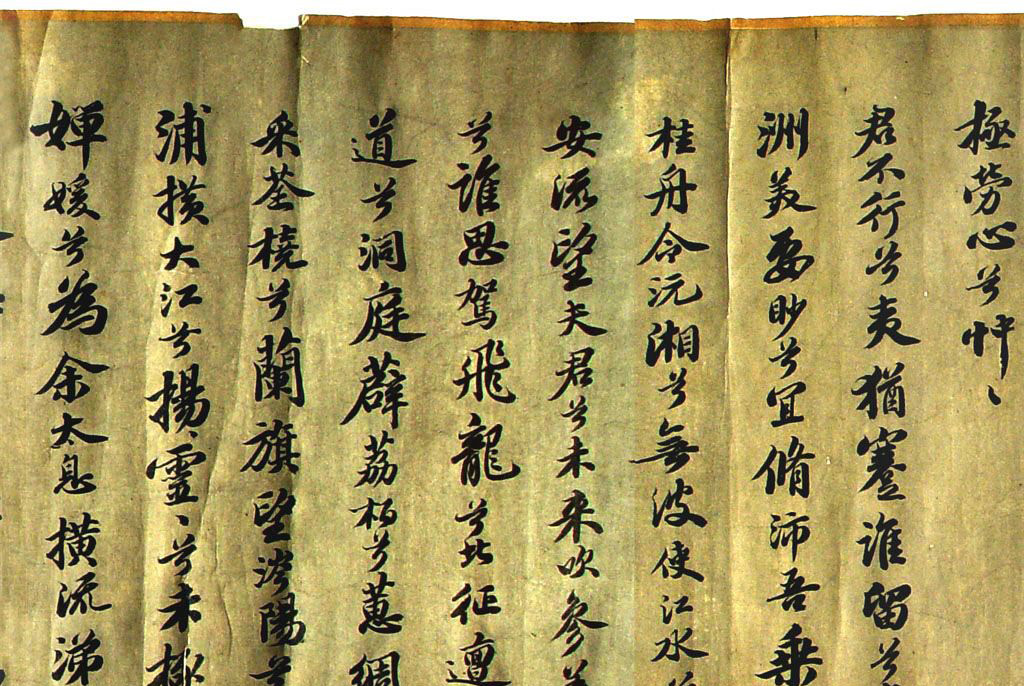 極勞心兮忡〻
君不行兮夷猶蹇誰留兮
洲美要眇兮宜脩沛吾乘
桂舟令沅湘兮無波使江水
安流望夫君兮未來吹參差
兮誰思駕飛龍兮北征邅
道兮洞庭薜荔柏兮蕙綢
采荃橈兮蘭旗望涔陽兮
浦橫大江兮揚靈〻兮未極
嬋媛兮為余太息橫流涕